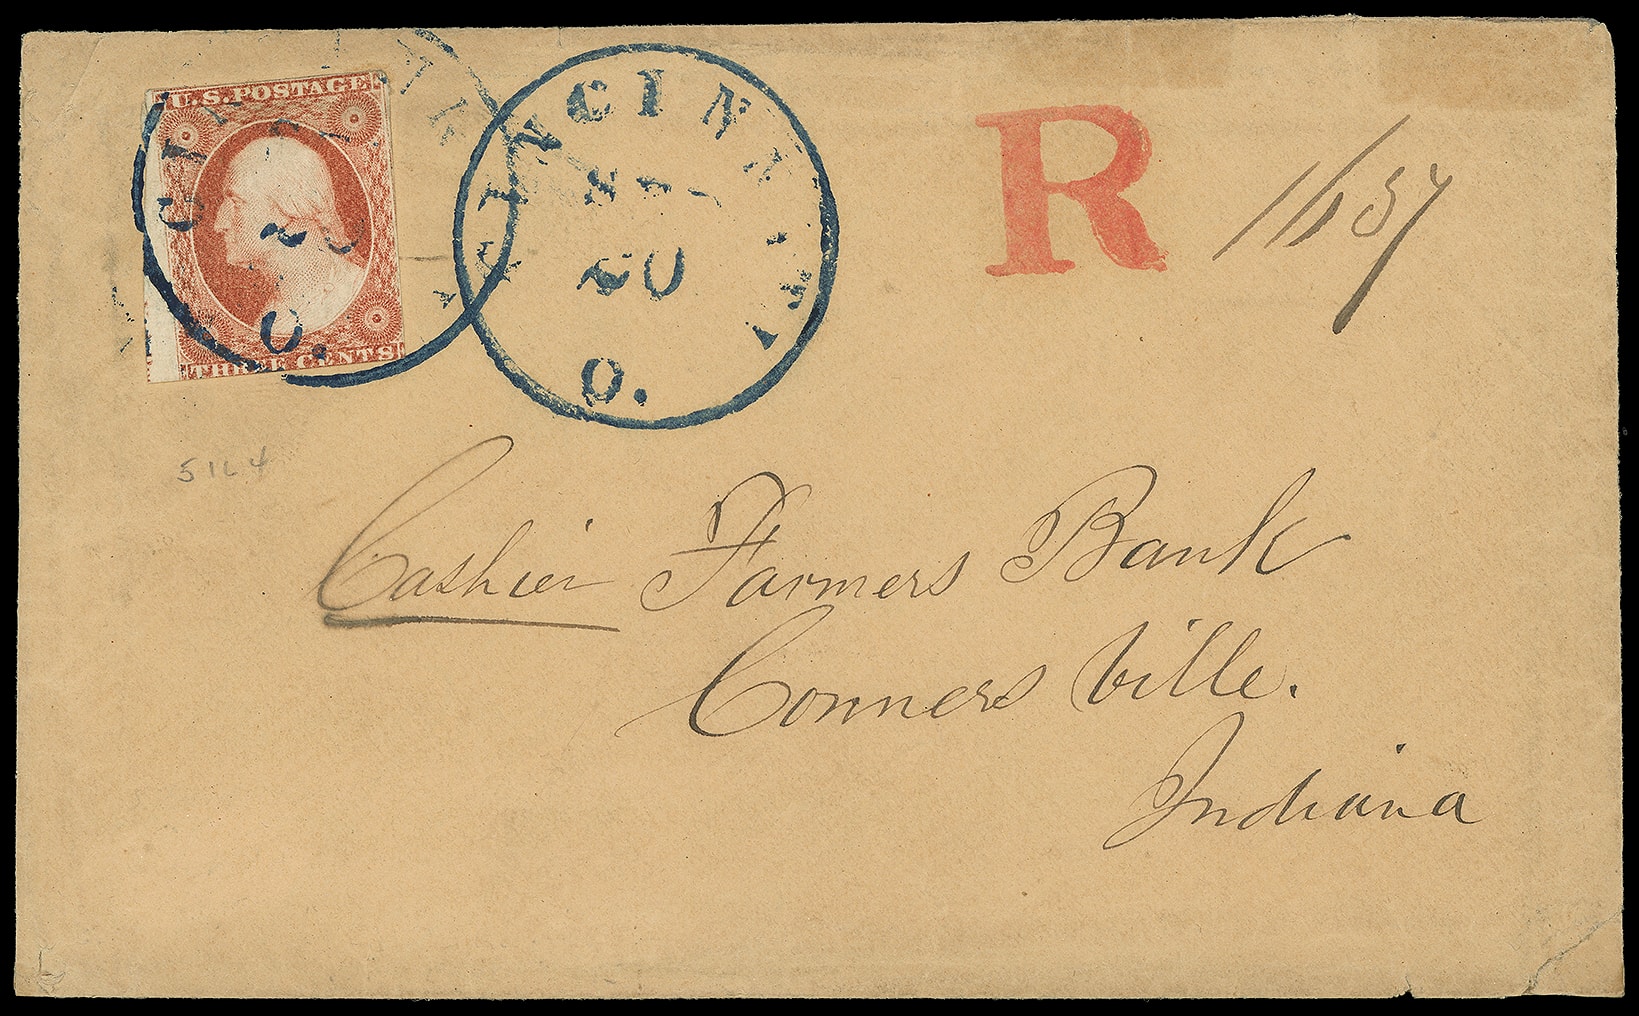 U.S. POSTAGE
THREE CENTS
CINCINNATI
20
O.
R
1657
5164
Cashier Farmers Bank
Conners Ville.
Indiana